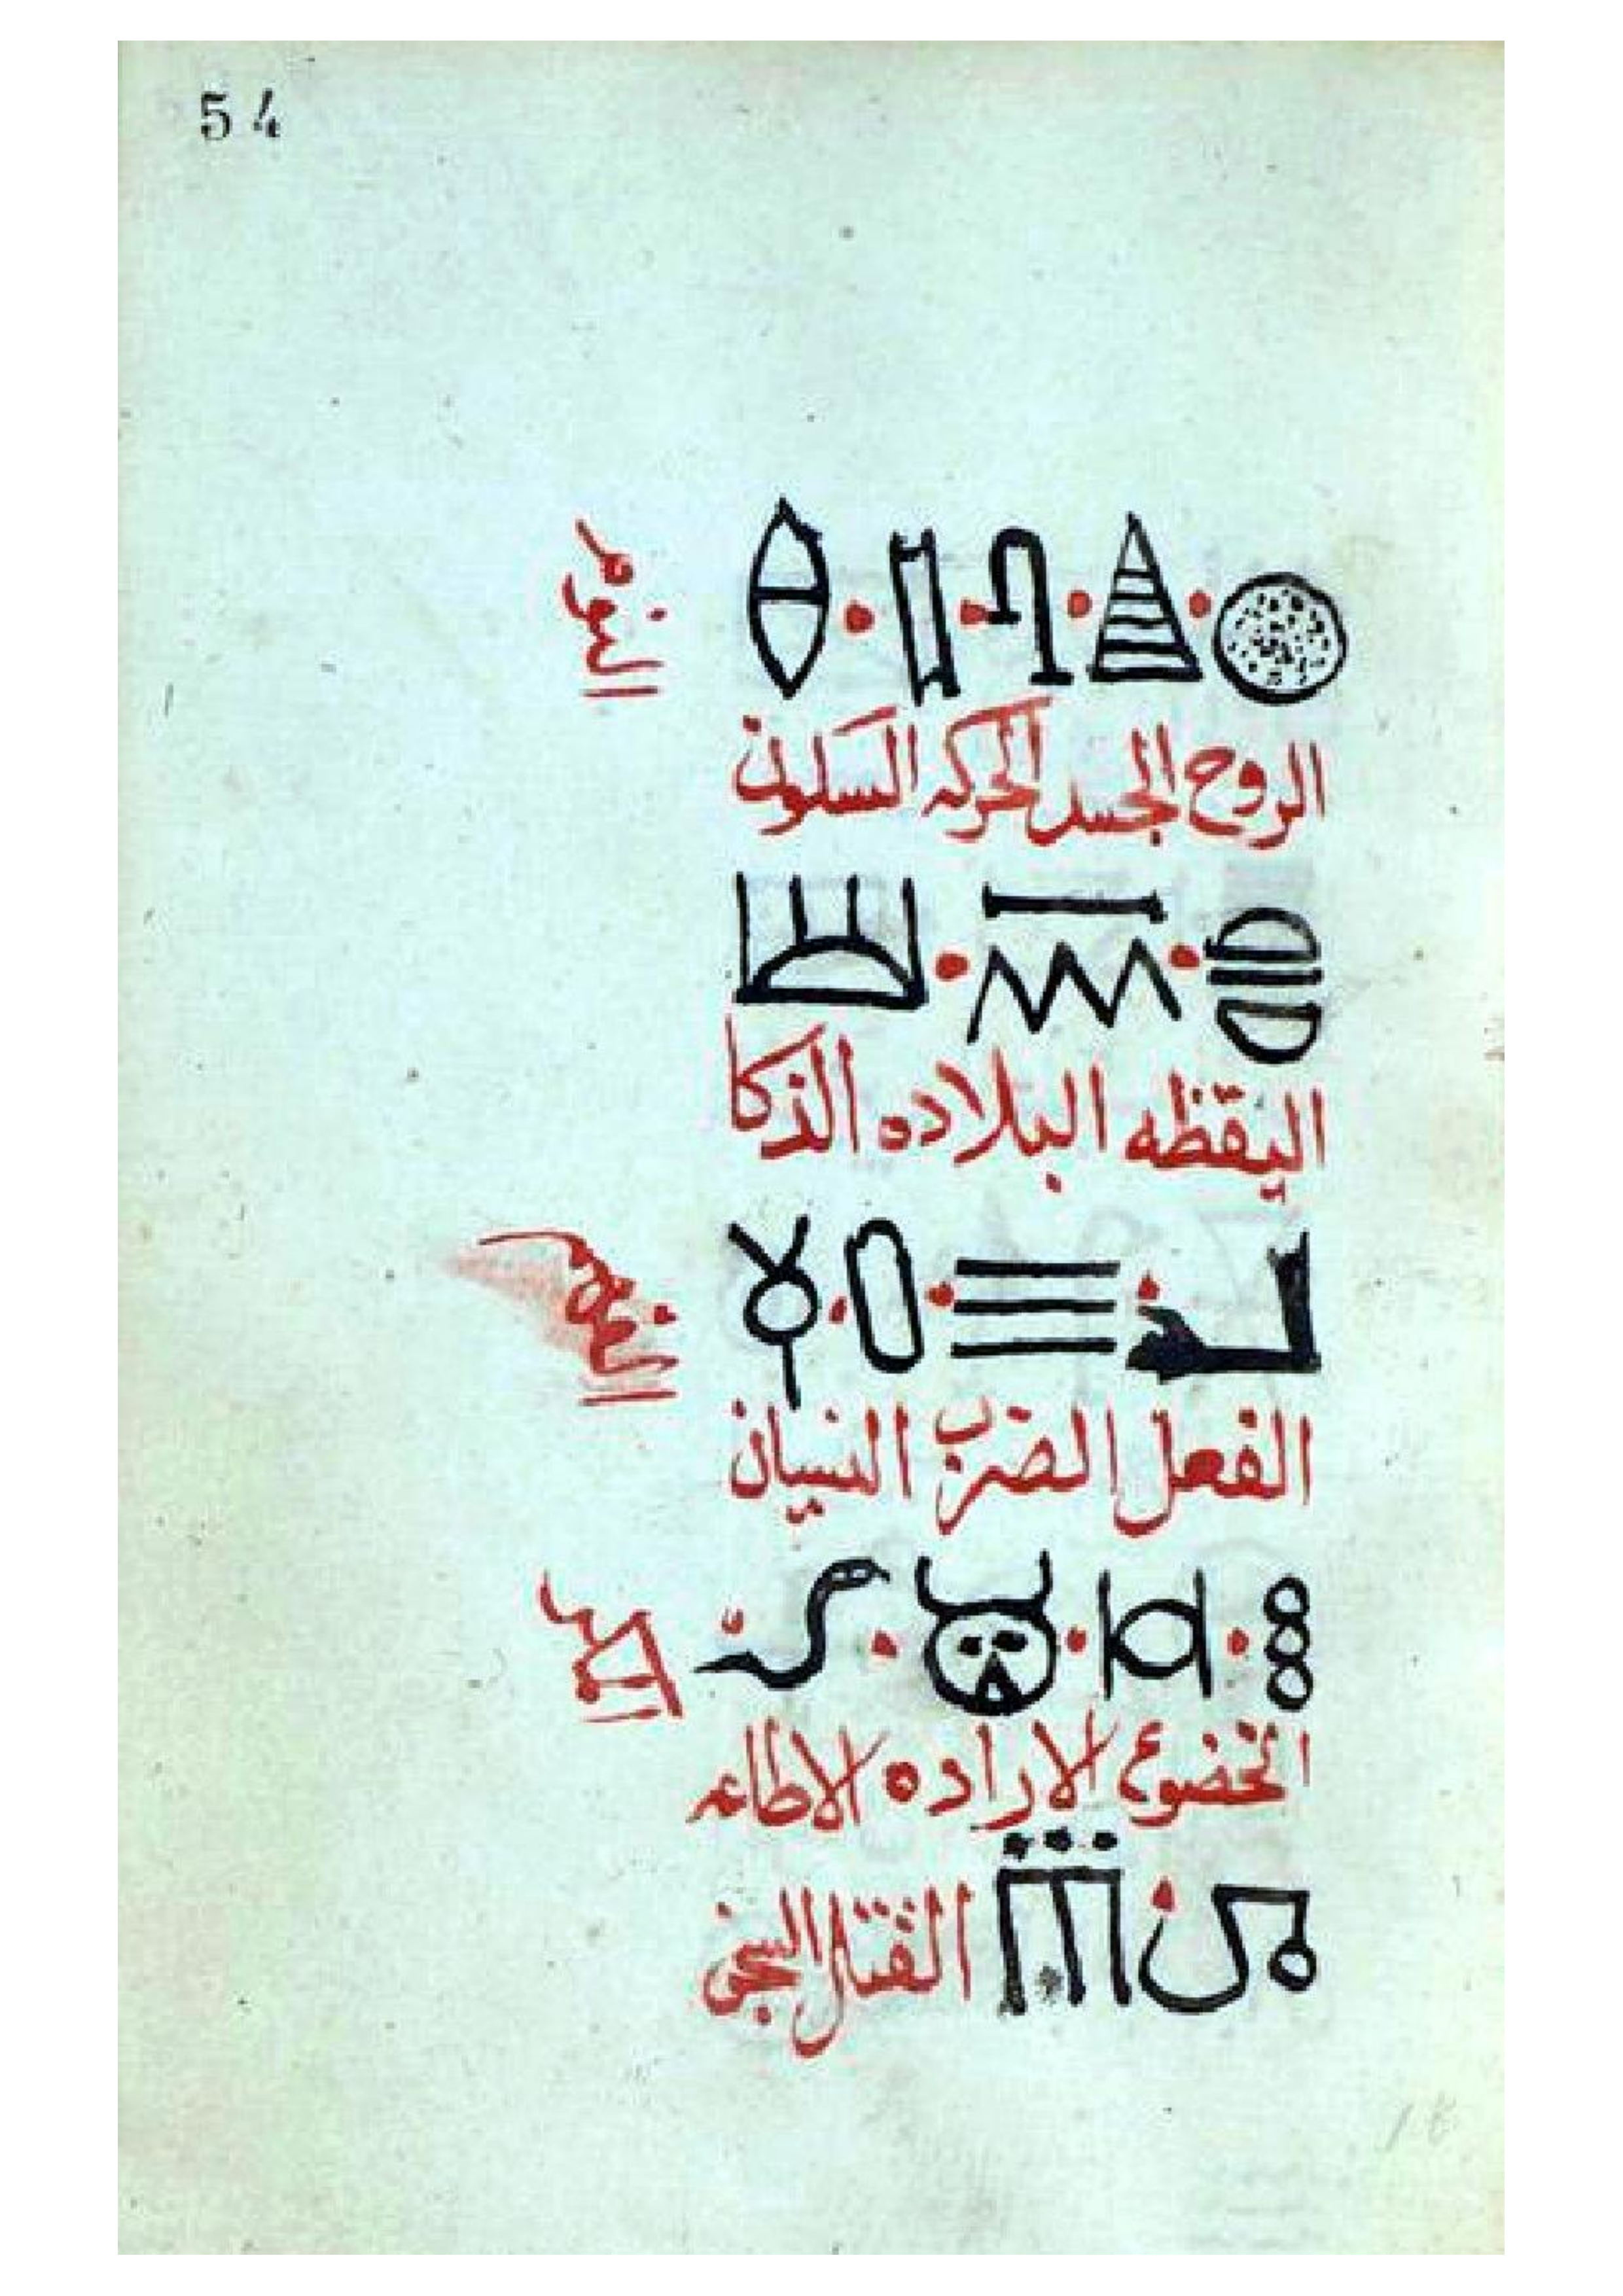 54
الروح الجسد الحركه السكون
النوم
اليقظه البلاده الذكا
الفعل الضرب النسيان
الخضوع الاراده الاطاعه
القتال السجن